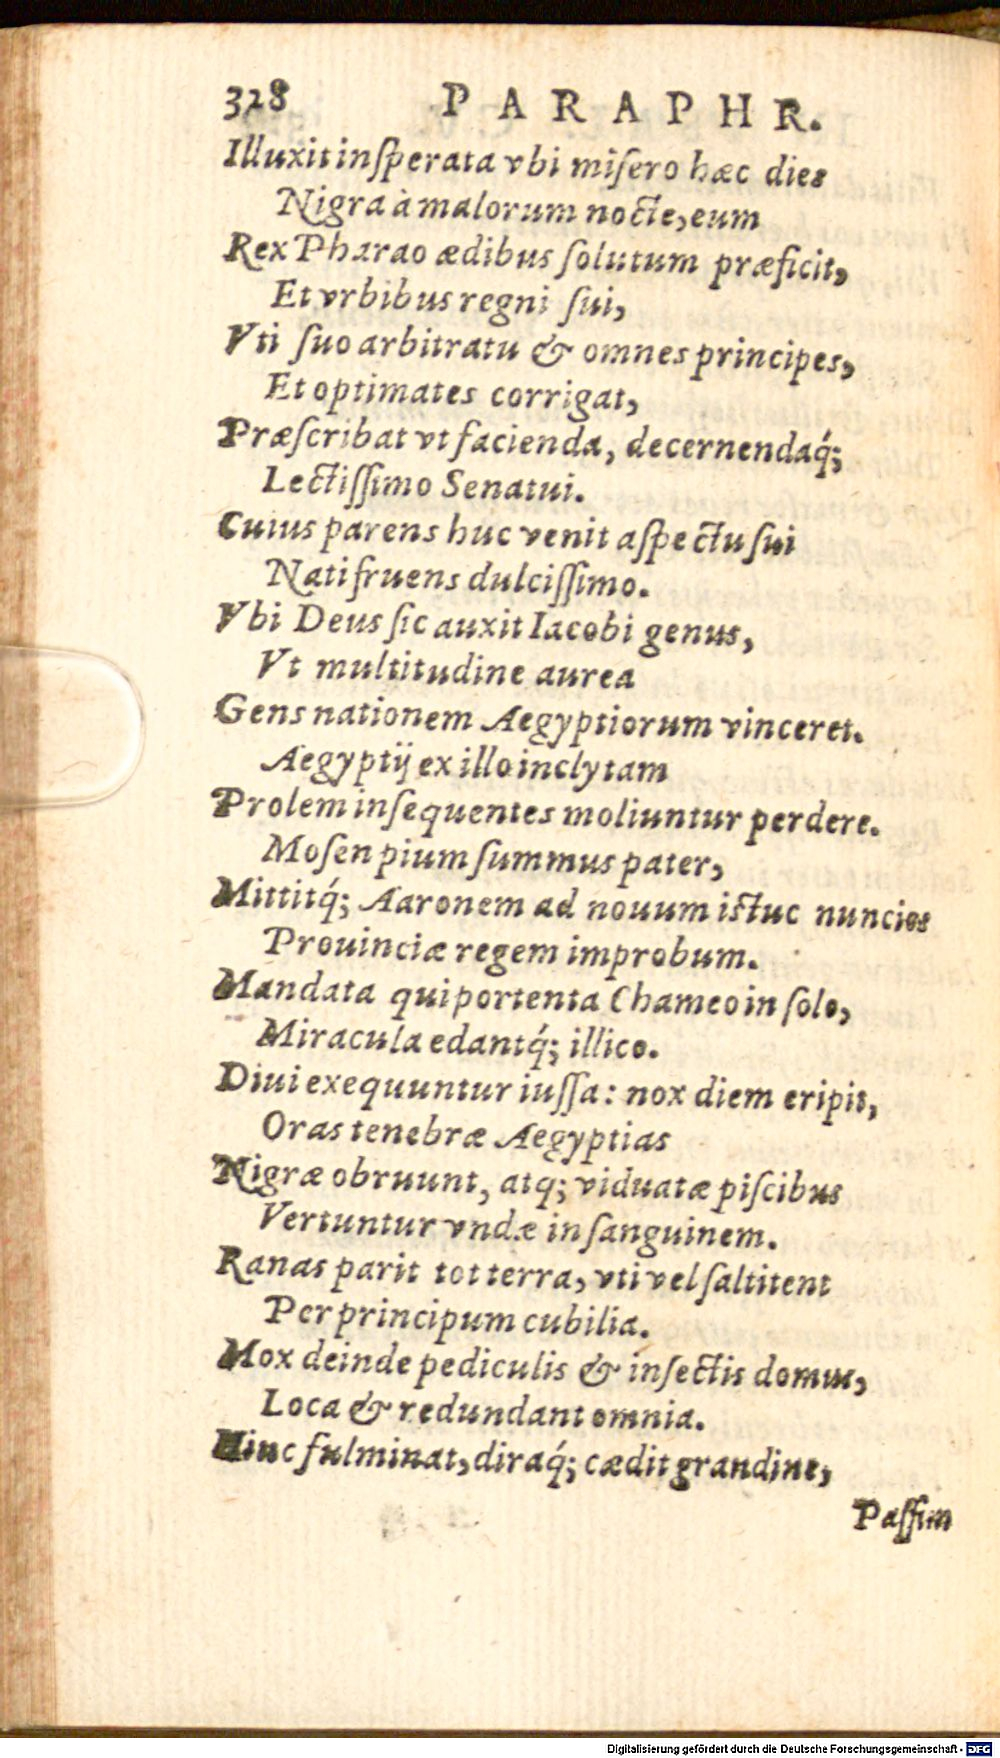 328 PARAPHR.
Illuxit inſperata vbi miſero hæc dies
Nigra à malorum nocte, eum
Rex Pharao ædibus ſolutum præficit,
Et vrbibus regni ſui,
Vti ſuo arbitratu & omnes principes,
Et optimates corrigat,
Præſcribat vt facienda, decernendaq́;
Lectiſſimo Senatui.
Cuius parens huc venit aſpectu ſui
Nati fruens dulciſſimo.
Vbi Deus ſic auxit Iacobi genus,
Vt multitudine aurea
Gens nationem Aegyptiorum vinceret.
Aegyptij ex illo inclytam
Prolem inſequentes moliuntur perdere.
Moſen pium ſummus pater,
Mittitq́; Aaronem ad nouum iſtuc nuncios
Prouinciæ regem improbum.
Mandata qui portenta Chameo in ſolo,
Miracula edantq́; illico.
Diui exequuntur iuſſa: nox diem eripit,
Oras tenebræ Aegyptias
Nigræ obruunt, atq; viduatæ piſcibus
Vertuntur vndæ in ſanguinem.
Ranas parit tot terra, vti vel ſaltitent
Per principum cubilia.
Mox deinde pediculis & inſectis domus,
Loca & redundant omnia.
Hinc fulminat, diraq́; cædit grandine,
Paſſim
Digitalisierung gefördert durch die Deutsche Forschungsgemeinschaft - DFG